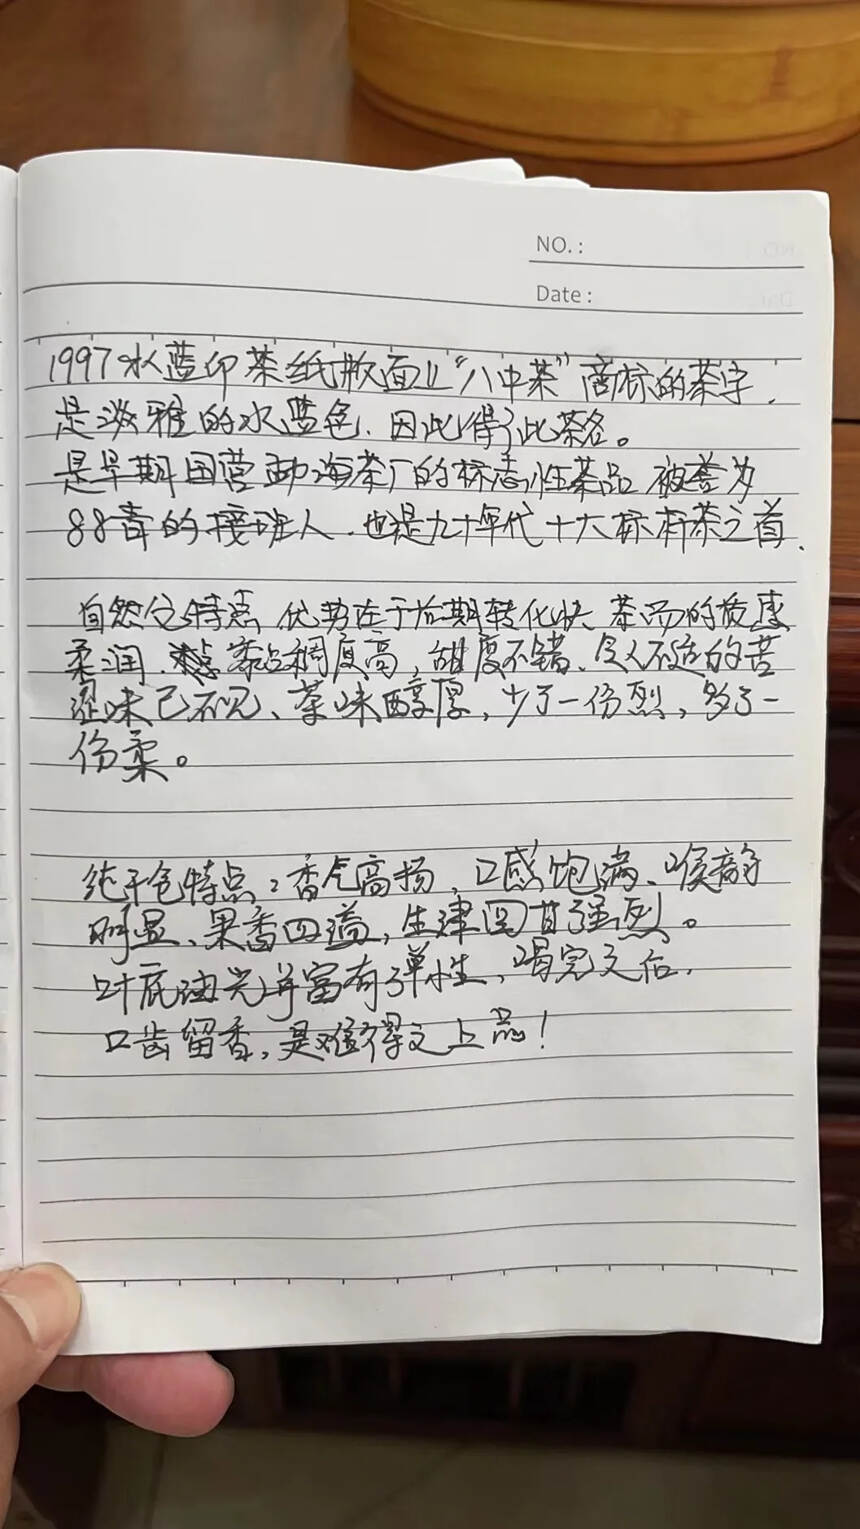 NO.:
Date:
1997水蓝印茶纸版面以“八中茶”商标的茶字.
是淡雅的水蓝色.因此得了此茶名。
是早期国营勐海茶厂的标志性茶品 被誉为
88青的接班人.也是九十年代十大标杆茶之首.
自然仓特点 优势在于后期转化快 茶汤的质感
柔润. 黏稠度高,甜度不错、令人不适的苦
涩味已不见、茶味醇厚,少了一份烈,多了一
份柔。
纯干仓特点:香气高扬,口感饱满、喉韵
明显、果香四溢,生津回甘强烈。
叶底油光并富有弹性,喝完之后.
口齿留香,是难得之上品!